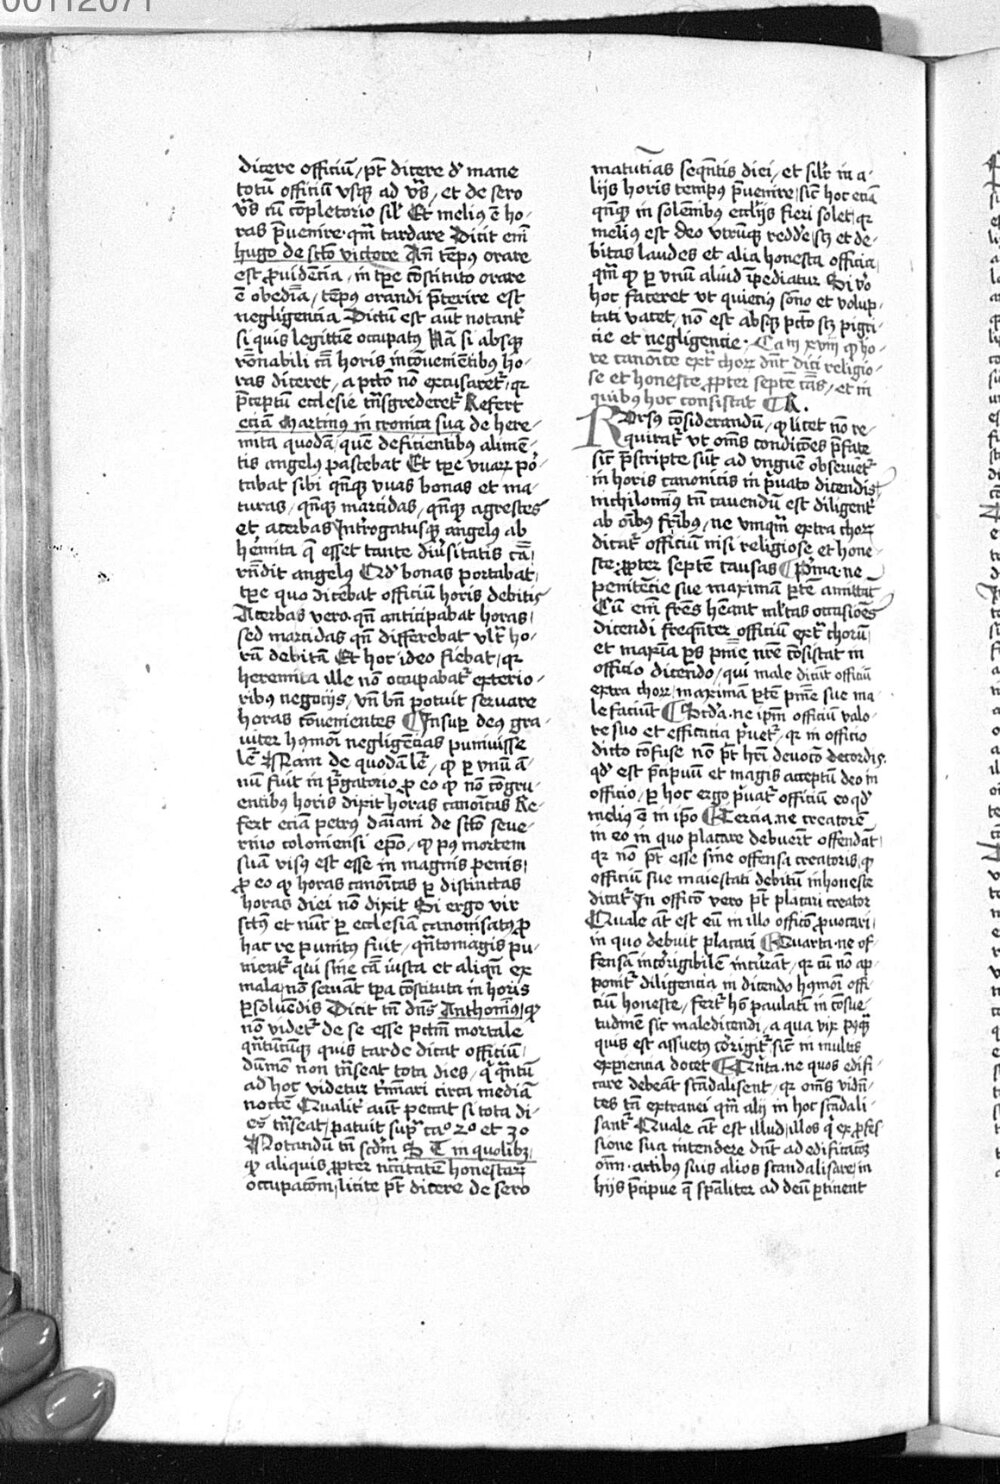 00112071
dicere officiu᷒, pt̄ dicere d' mane
totū officiū vsq; ad vr̄s, et de sero
vr̄s cū cōpletorio sil' Et meliꝰ ē ho-
ras p̄uenire qm̄ tardare Dicit em̄
hugo de scto victore An̄ tēpꝰ orare
est ꝓuidētia, in tp̄e cōstituto orare
ē obediā, tēpꝰ orandi p̄terire est
negligentia Dictū est aut̄ notant'
si quis legittīe occupatꝰ Nā si absq;
rōnabili cā horis incōuenientibꝰ ho-
ras diceret, a pctō nō excusaret', qr
p̄ceptū ecclesie tn̄sgrederet' Refert
eciā Martinꝰ in cronica sua de here-
mita quodā, quē deficientibꝰ alimē-
tis angelꝰ pascebat Et tp̄e vuarꝝ por-
tabat sibi qn̄q; vuas bonas et ma-
turas, qn̄q; marcidas, qn̄q; agrestes
et acerbas Int'rogatusq; angelꝰ ab
he'mita q̄ esset tante diu'sitatis cā,
rn̄dit angelꝰ Qd' bonas portabat,
tp̄e quo dicebat officiū horis debitis
Acerbas vero qn̄ anticipabat horas,
sed marcidas qn̄ differebat vlt' ho-
rā debitā Et hoc ideo fiebat, qr
heremita ille nō occupabat' exterio-
ribꝰ negocijs, vn̄ bn̄ potuit seruare
horas cōuenientes ¶ Insup deꝰ gra-
uiter hꝰmōi negligētias puniuisse
le' Nam de quodā le', ꝙ ꝑ vnū an̄-
nū fuit in p'gatorio ꝓ eo ꝙ nō cōgru-
entibꝰ horis dixit horas canōicas Re-
fert eciā petrꝰ damiani de scto seue-
rino coloniensi ep̄o, ꝙ pꝰ mortem
suā visꝰ est esse in magnis penis,
ꝓ eo ꝙ horas canōicas ꝑ distinctas
horas diei nō dixit Si ergo vir
sctꝰ et nūc ꝑ ecclesiā canonisatꝰ ꝓ
hac re punitꝰ fuit, qn̄tomagis pu-
nient' qui sine cā iusta et aliqn̄ ex
mala, nō seruāt tp̄a cōstituta in horis
ꝑsoluendis Dicit tn̄ dn̄s Anthoniꝰ, ꝙ
nō videt' de se esse pctm̄ mortale
qn̄tūcūq; quis tarde dicat officiū,
dūmō non tn̄seat tota dies, q̄ qn̄tū
ad hoc videtur t'mīari circa mediā
noctē Qualit' aut̄ peccat si tota di-
es tn̄seat, patuit sup' caº 2º et 3º
Notandū tn̄ scdm S T in quolibꝫ,
ꝙ aliquis ꝓpter n̄citatē honestarꝫ
occupacōm, licite pt̄ dicere de sero
matutīas seqn̄tis diei, et silr̄ in a-
lijs horis tempꝰ p̄uenire, sic̄ hoc eciā
qn̄q; in solēnibꝰ eccl'ijs fieri solet, qr
meliꝰ est deo vtrūq; redde', scꝫ et de-
bitas laudes et alia honesta officia,
qm̄ ꝙ ꝑ vnū aliud īpediatur Si vo'
hoc faceret vt quieciꝰ sōno et volup-
tati vacet, nō est absq; pctō scꝫ pigri-
cie et negligencie. Cam xviii ꝙ ho-
re canōice ext' chorꝝ dn̄t dici religio-
se et honeste ꝓpter septē cās, et in
quibꝰ hoc consistat ¶ R.
Rorsꝰ cōsiderandū, ꝙ licet nō re-
quirat' vt om̄s condicōes p̄fate
sic̄ p̄scripte sūt ad vnguē obseruēt'
in horis canonicis in p'uato dicendis,
nichilominꝰ tn̄ cauendū est diligent'
ab oībꝰ fr̄ibꝰ, ne vnqm̄ extra chorꝝ
dicat' officiū nisi religiose et hone-
ste ꝓpter septē causas ¶ P'ma ne
penitēcie sue maximā ꝑtē amittāt
Cū em̄ fr̄es hēant ml'tas occasiōes
dicendi freqn̄ter officiū ext' chorū,
et maxīa ꝑs pn̄ie nr̄e cōsistat in
officio dicendo, qui male dicūt officiū
extra chorꝝ, maximā ꝑtē pn̄ie sue ma-
le faciūt ¶ Scd'a ne ipm̄ officiū valo-
re suo et efficacia p'uet', qr in officio
dicto cōfuse nō pt̄ hr̄i deuocō decordis,
qd' est p̄cipuū et magis acceptū deo in
officio, ꝑ hoc ergo p'uat' officiū eo qd'
meliꝰ ē in ipo ¶ Tercia ne creatorē
in eo in quo placare debuert̄ offendāt,
qr nō pt̄ esse sine offensa creatoris, ꝙ
officiū sue maiestati debitū inhoneste
dicat' In officō vero pt̄ placari creator
Quale at̄ est eū in illo officō ꝓuocari,
in quo debuit placari ¶ Quarta ne of-
fensā incorrigibilē incurrāt, qr cū nō ap-
ponit' diligencia in dicendo hꝰmōi offi-
ciū honeste, fert' hō paulatī in cōsue-
tudinē sic maledicendi, a qua vix pꝰq;
quis est assuetꝰ corrigit' sic̄ in multis
experiencia docet ¶ Qn̄ta ne quos edifi-
care debeāt scādalisent, qr om̄s vidn̄-
tes tā extranei qm̄ alij in hoc scādali-
sant' Quale at̄ est illud, illos q' ex ꝓfes-
sione sua intendere dn̄t ad edificacōꝫ
oīm, actibꝰ suis alios scandalisare, in
hijs p̄cipue q̄ sp̄aliter ad deū ꝑtinent